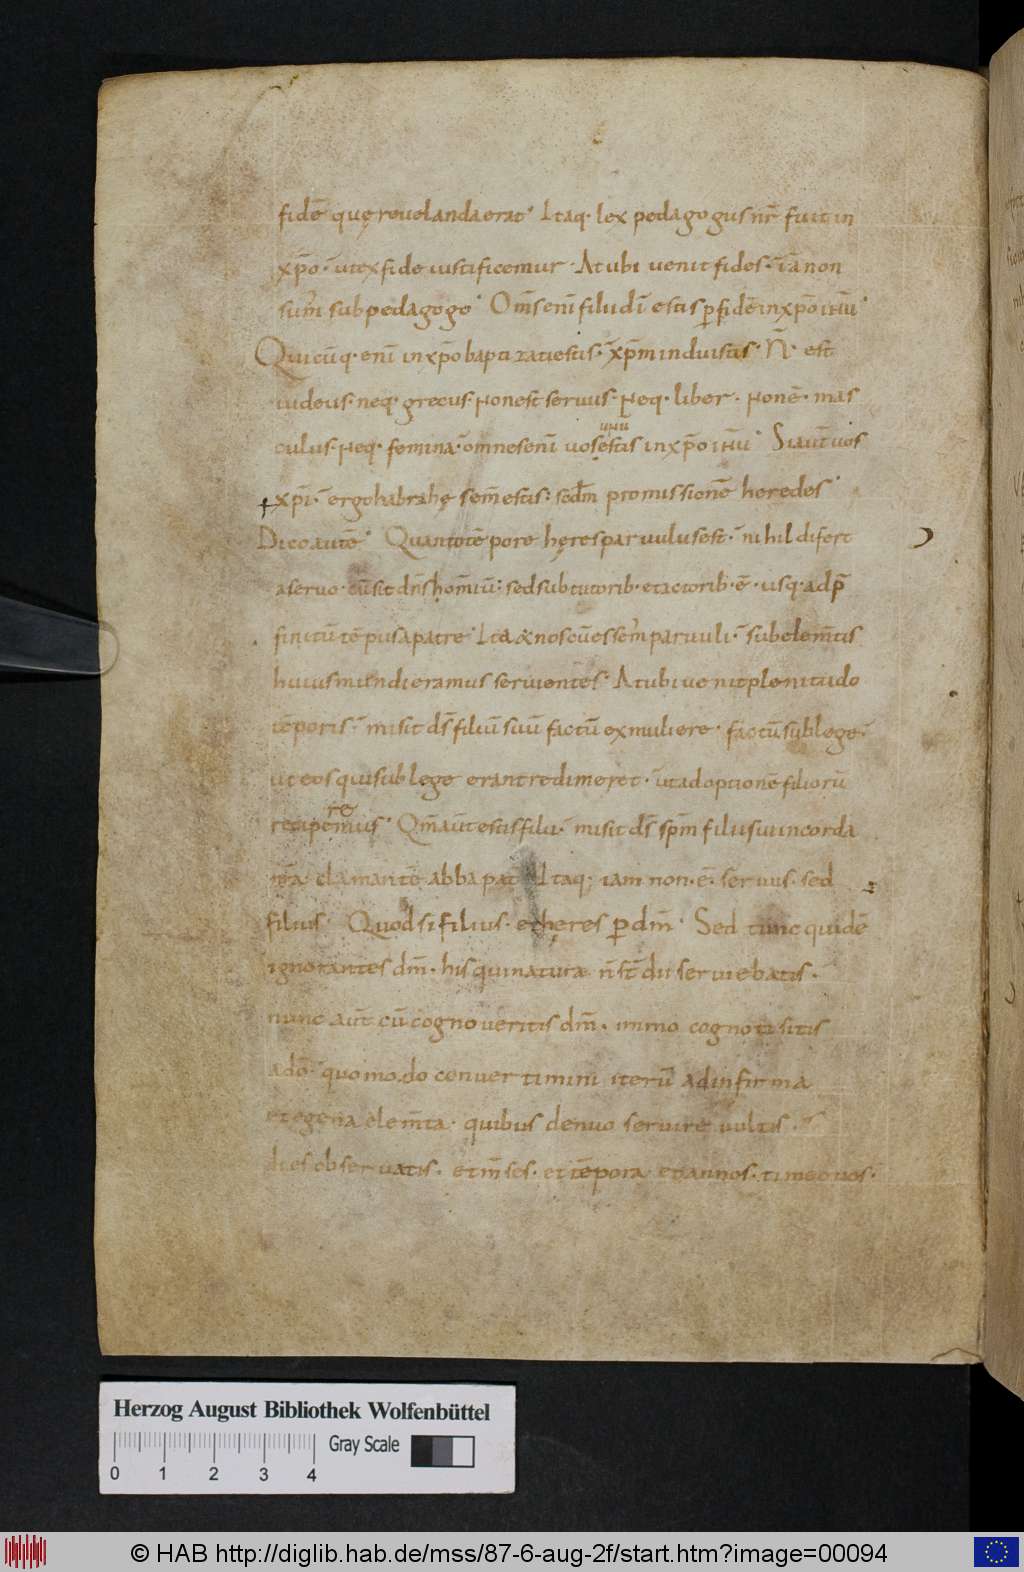 fidē quę reuelanda erat· Itaq· lex pedagogus nr̄ fuit in
xp̄o· ut ex fide iustificemur· At ubi uenit fides· iā non
sum̄ sub pedagogo· Om̄s enī filii dī estis p̱ fidē in xp̄o ihū·
Quicūq· enī in xp̄o baptizati estis· xp̄m induistis· N̄· est
iudeus· neq· grecus· Non est seruus· Neq· liber· Non ē· mas
culus· Neq· femina· omnes enī uos estis in xp̄o ihū· Si aut̄ uos
unū
xp̄i· ergo habrahę sem̄ estis· scdm̄ promissionē heredes·
Dico autē· Quanto tēpore hęres paruulus est· nihil difert
a seruo· cū sit dn̄s homīū· sed sub tutorib· et actorib· ē· usq· ad p̄
finitū tēpus a patre· Ita & nos cū essem̄ paruuli· sub elem̄tis
huius mundi eramus seruientes· At ubi uenit plenitudo
tēporis· misit ds̄ filiū suū factū ex muliere· factū sub lege·
ut eos qui sub lege erant redimeret· ut adoptionē filiorū
re
recipemus· Qm̄ aut̄ estis filii· misit ds̄ sp̄m filii sui in corda
nr̄a clamantē abba pat̄ Itaq; iam non· ē· seruus· sed
filius· Quod si filius· et hęres p̱ dm̄· Sed tunc quidē
ignorantes dm̄· his qui natura n̄ st̄ dii seruiebatis·
nunc aut̄ cū cognoueritis dm̄· immo cogniti sitis
a dō· quomodo conuertimini iterū ad infirma
et egena elem̄ta· quibus denuo seruire uultis·
dies obseruatis· et m̄ses· et tēpora et annos· timeo uos·
Herzog August Bibliothek Wolfenbüttel
Gray Scale
0 1 2 3 4
© HAB http://diglib.hab.de/mss/87-6-aug-2f/start.htm?image=00094